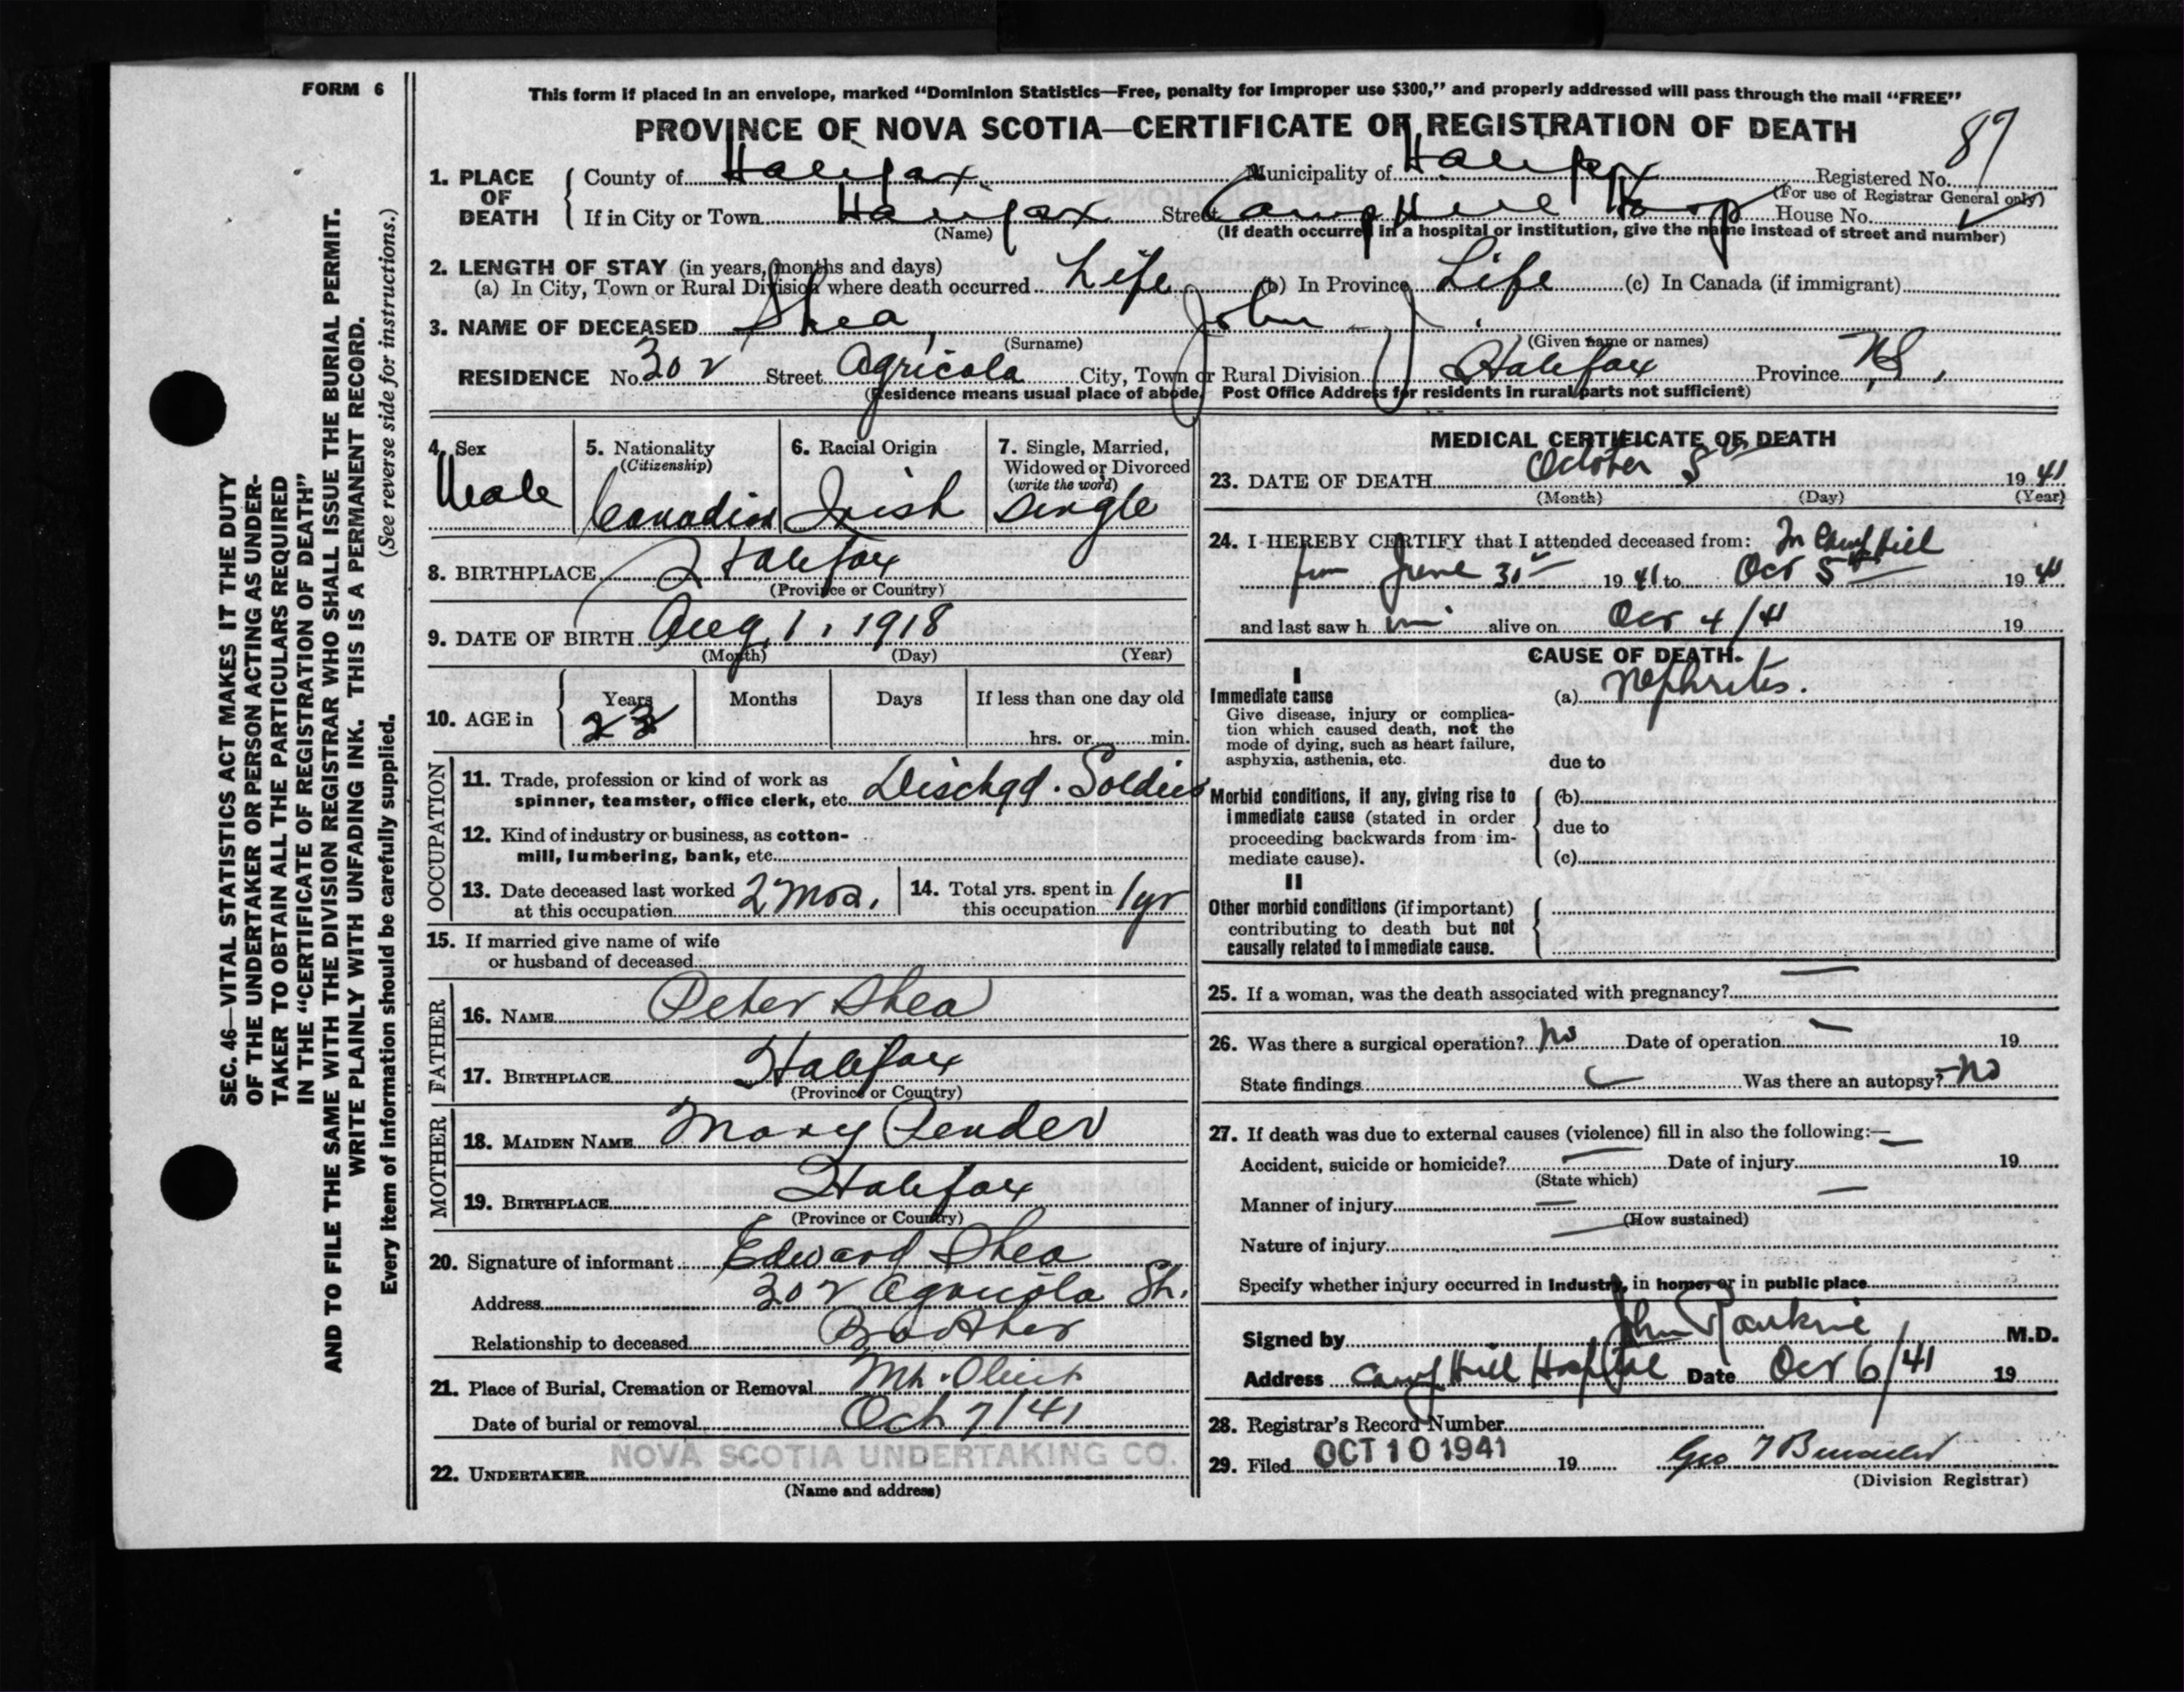 FORM 6
This form if placed in an envelope, marked “Dominion Statistics—Free, penalty for improper use $300,” and properly addressed will pass through the mail “FREE”
PROVINCE OF NOVA SCOTIA—CERTIFICATE OF REGISTRATION OF DEATH
1. PLACE OF DEATH County of Halifax Municipality of Halifax Registered No. 87
(For use of Registrar General only)
If in City or Town Halifax Street Camp Hill Hosp House No.
(Name) (If death occurred in a hospital or institution, give the name instead of street and number)
2. LENGTH OF STAY (in years, months and days)
(a) In City, Town or Rural Division where death occurred Life (b) In Province Life (c) In Canada (if immigrant)
3. NAME OF DECEASED Shea, John - J.
(Surname) (Given name or names)
RESIDENCE No. 302 Street Agricola City, Town or Rural Division Halifax Province N.S.
(Residence means usual place of abode. Post Office Address for residents in rural parts not sufficient)
4. Sex
Male
5. Nationality
(Citizenship)
Canadian
6. Racial Origin
Irish
7. Single, Married,
Widowed or Divorced
(write the word)
Single
8. BIRTHPLACE Halifax
(Province or Country)
9. DATE OF BIRTH Aug, 1, 1918
(Month) (Day) (Year)
10. AGE in Years Months Days If less than one day old
23 hrs. or min.
OCCUPATION
11. Trade, profession or kind of work as
spinner, teamster, office clerk, etc. Dischgd. Soldier
12. Kind of industry or business, as cotton-
mill, lumbering, bank, etc.
13. Date deceased last worked
at this occupation 2 mos.
14. Total yrs. spent in
this occupation 1 yr
15. If married give name of wife
or husband of deceased
FATHER
16. NAME Peter Shea
17. BIRTHPLACE Halifax
(Province or Country)
MOTHER
18. MAIDEN NAME Mary Pender
19. BIRTHPLACE Halifax
(Province or Country)
20. Signature of informant Edward Shea
Address 302 Agricola St.
Relationship to deceased Brother
21. Place of Burial, Cremation or Removal Mt. Olivet
Date of burial or removal Oct 7/41
NOVA SCOTIA UNDERTAKING CO.
22. UNDERTAKER
(Name and address)
MEDICAL CERTIFICATE OF DEATH
23. DATE OF DEATH October 5th 1941
(Month) (Day) (Year)
24. I HEREBY CERTIFY that I attended deceased from: In Camp Hill
from June 30th 1941 to Oct 5th 1941
and last saw him alive on Oct 4/41 19
CAUSE OF DEATH.
I
Immediate cause (a) Nephritis.
Give disease, injury or complica-
tion which caused death, not the
mode of dying, such as heart failure,
asphyxia, asthenia, etc. due to
Morbid conditions, if any, giving rise to (b)
immediate cause (stated in order
proceeding backwards from im- due to
mediate cause). (c)
II
Other morbid conditions (if important)
contributing to death but not
causally related to immediate cause.
25. If a woman, was the death associated with pregnancy? —
26. Was there a surgical operation? No Date of operation — 19
State findings Was there an autopsy? No
27. If death was due to external causes (violence) fill in also the following:—
Accident, suicide or homicide? — Date of injury 19
(State which)
Manner of injury
(How sustained)
Nature of injury
Specify whether injury occurred in industry, in home, or in public place
Signed by John Rankine M.D.
Address Camp Hill Hospital Date Oct 6/41 19
28. Registrar's Record Number
29. Filed OCT 10 1941 19 Geo
(Division Registrar)
SEC. 46—VITAL STATISTICS ACT MAKES IT THE DUTY
OF THE UNDERTAKER OR PERSON ACTING AS UNDER-
TAKER TO OBTAIN ALL THE PARTICULARS REQUIRED
IN THE “CERTIFICATE OF REGISTRATION OF DEATH”
AND TO FILE THE SAME WITH THE DIVISION REGISTRAR WHO SHALL ISSUE THE BURIAL PERMIT.
WRITE PLAINLY WITH UNFADING INK. THIS IS A PERMANENT RECORD.
Every item of information should be carefully supplied. (See reverse side for instructions.)